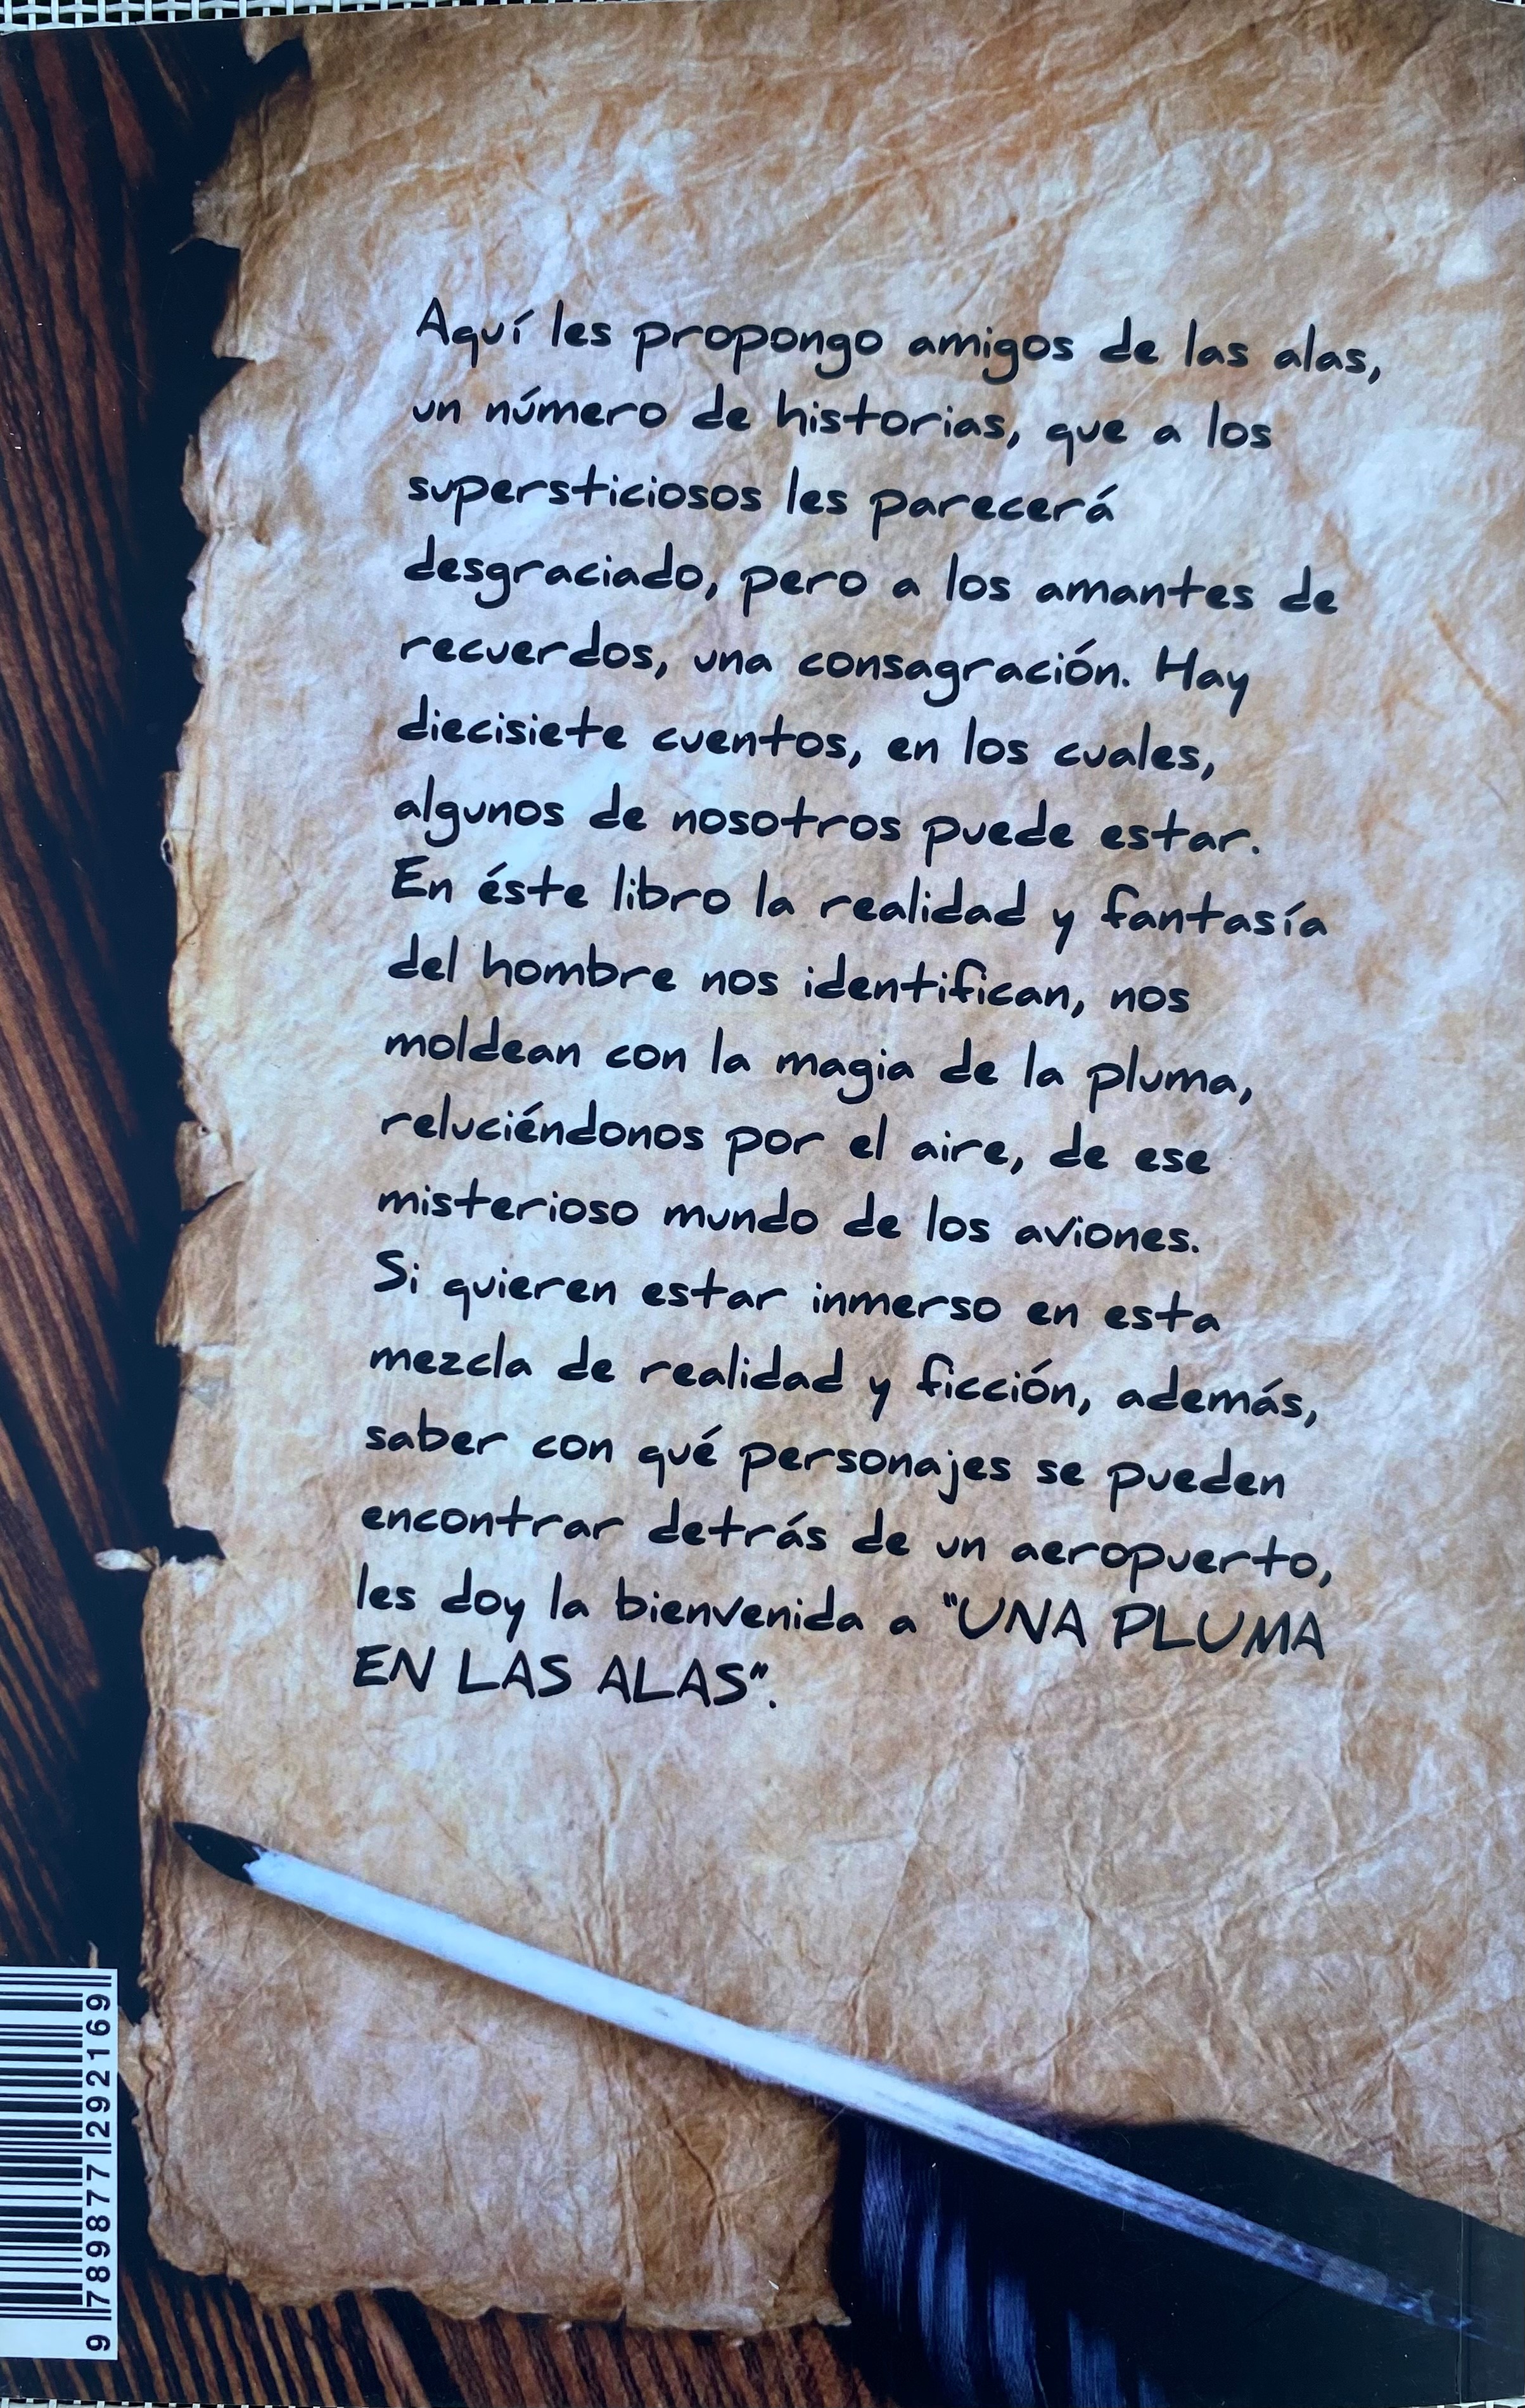 Aquí les propongo amigos de las alas,
un número de historias, que a los
supersticiosos les parecerá
desgraciado, pero a los amantes de
recuerdos, una consagración. Hay
diecisiete cuentos, en los cuales,
algunos de nosotros puede estar.
En éste libro la realidad y fantasía
del hombre nos identifican, nos
moldean con la magia de la pluma,
reluciéndonos por el aire, de ese
misterioso mundo de los aviones.
Si quieren estar inmerso en esta
mezcla de realidad y ficción, además,
saber con qué personajes se pueden
encontrar detrás de un aeropuerto,
les doy la bienvenida a "UNA PLUMA
EN LAS ALAS".
9 789877 292169